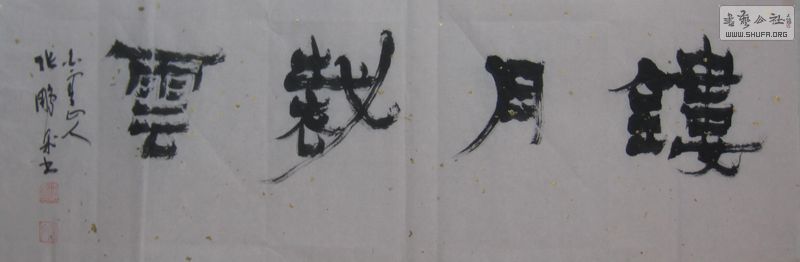 鏤月裁雲
山人
張鵬書
書藝公社
WWW.SHUFA.ORG